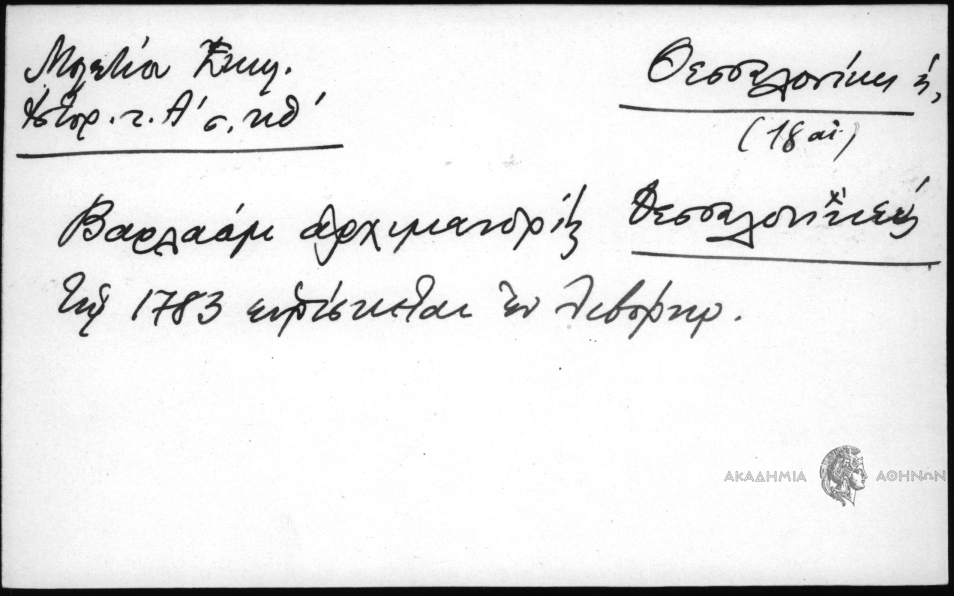 Μελετίου Ἐκκλ.
Ἱστορ. τ. Α΄ σ. κθ΄
Θεσσαλονίκη ἡ,
(18 αἰ.)
Βαρλαὰμ ἀρχιμανδρίτης Θεσσαλονικεὺς
τῷ 1783 εὑρίσκεται ἐν Λιβόρνῳ.
ΑΚΑΔΗΜΙΑ ΑΘΗΝΩΝ